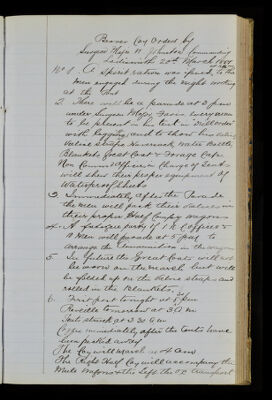 Bearer Coy Orders by
Surgeon Major W Johnston Commanding
Ladismith 20th March
No 1 A Spirit ration was issued to the
men engaged during the night working
at the
2. There will be a parade at 3 pm
under Surgeon Major every man
to be present in
with leggings and to shew
Valise straps Haversack Water Bottle
Blankets Great Coat & Forage Cap.
Non Comm Officers in Charge of Sect
will shew their proper equipment of
Waterproof Sheets
3 Immediately after the Parade
the men will pack their Valises in
their proper Half Comp'y wagon
4. A fatigue party of 1 N C officer &
men will parade at 5 pm to
arrange the Ammunition in the
5 In future the Great Coats will not
be worn on the march but will
be rolled up on the Valise straps and
rolled in the Blankets.
6. First post tonight at 8 pm
Reveille tomorrow at 3 a m
Tents struck at 3 30 a m
Coffee immediately after the tents have
been packed away
The Coy will march at 4 am
The Right Half Coy will accompany the
Mule Wagons & the Left the OC transport